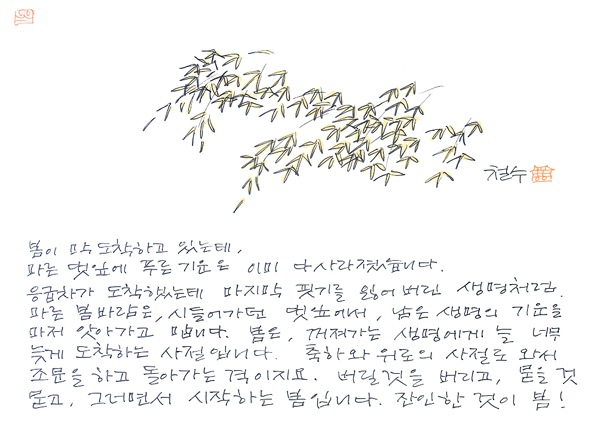 철수
봄이 막 도착하고 있는데,
마른 댓잎에 푸른 기운은 이미 다 사라졌습니다.
응급차가 도착했는데 마지막 핏기를 잃어버린 생명처럼.
마른 봄바람은, 시들어가던 댓잎에서, 남은 생명의 기운을
마저 앗아가고 맙니다. 봄은, 꺼져가는 생명에게 늘 너무
늦게 도착하는 사절입니다. 축하와 위로의 사절로 와서
조문을 하고 돌아가는 격이지요. 버릴것을 버리고, 묻을 것
묻고, 그러면서 시작하는 봄입니다. 잔인한 것이 봄!